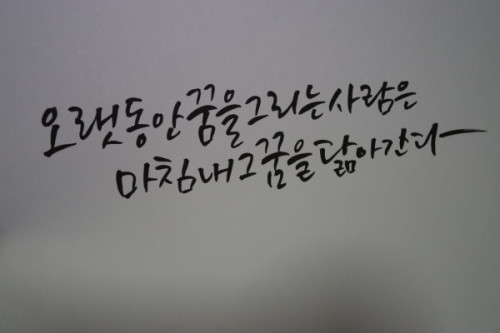 오랫동안 꿈을 그리는 사람은
마침내 그 꿈을 닮아 간다